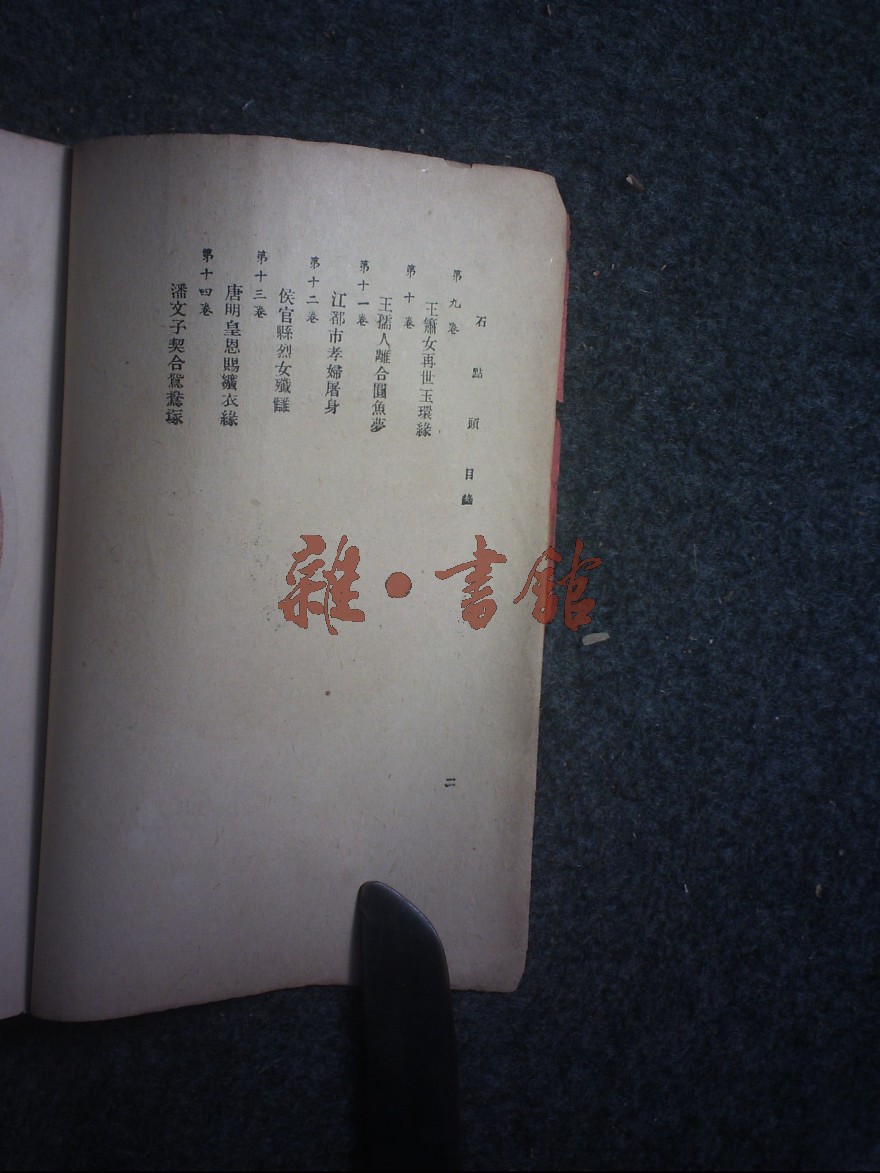 石點頭目錄
第九卷
王簫女再世玉環緣
第十卷
王孺人離合團魚夢
第十一卷
江都市孝婦屠身
第十二卷
侯官縣烈女殲讎
第十三卷
唐明皇恩賜纊衣緣
第十四卷
潘文子契合鴛鴦塚
二
雜·書館